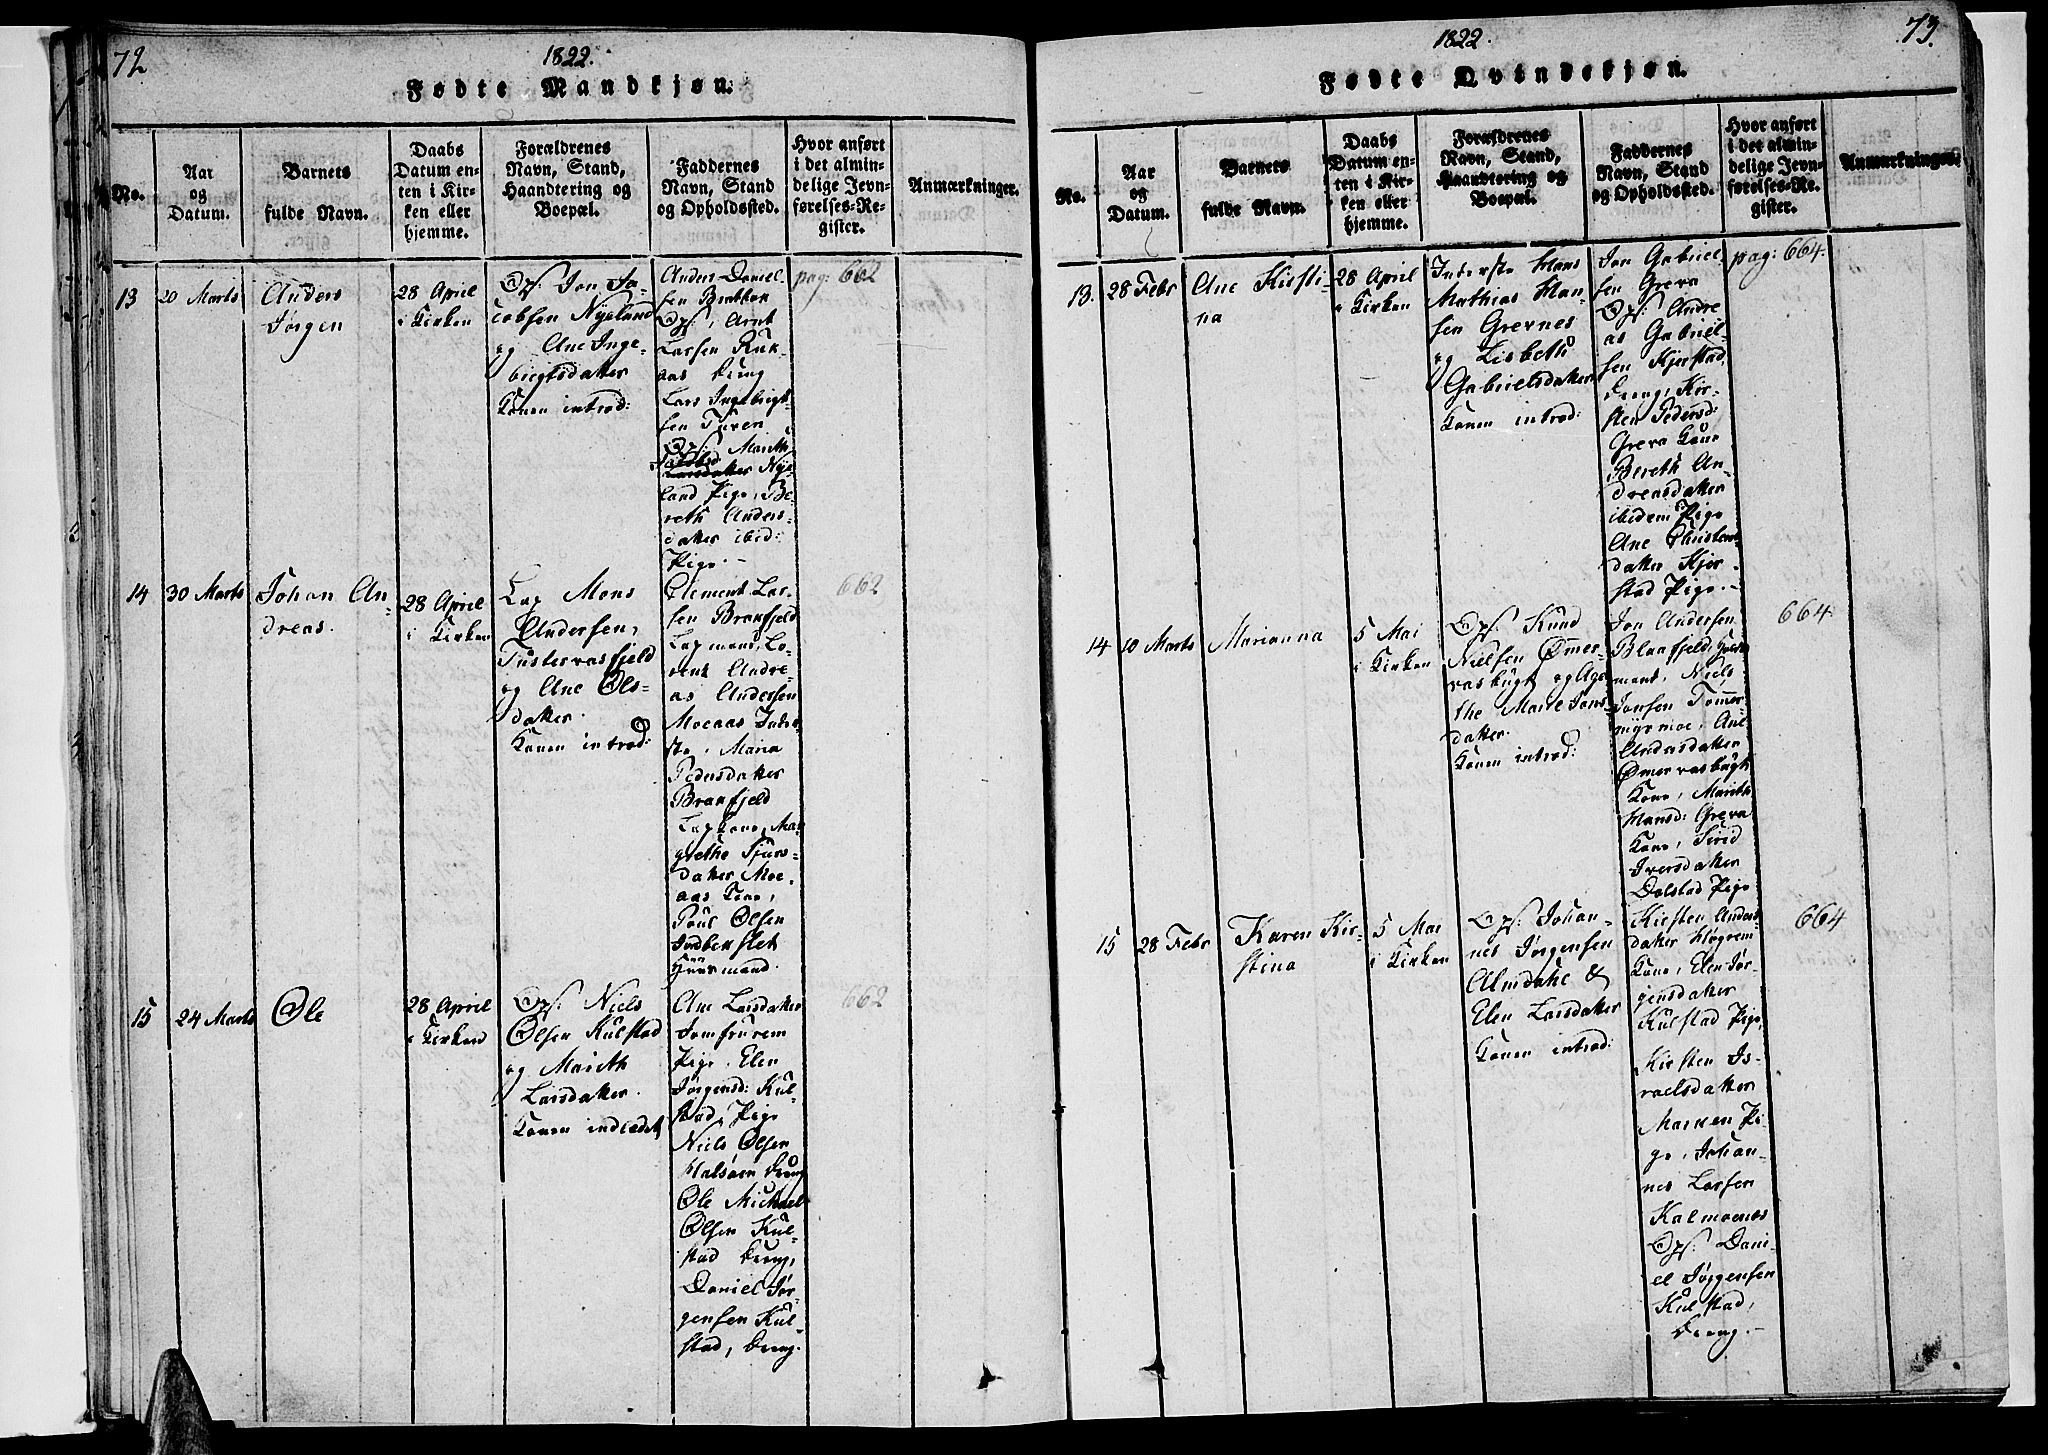 72
1822.
Fødte Mandkjøn.
No.
Aar
og
Datum.
Barnets
fulde Navn.
Daabs
Datum en-
ten i Kir-
ken eller
hjemme.
Forældrenes
Navn, Stand,
Haandtering og
Boepæl.
Faddernes
Navn, Stand
og Opholdssted.
Hvor anført
i det almin-
delige Jevn-
førelses-Re-
gister.
Anmærkninger.
13
20 Marts
Anders
Jørgen
28 April
i Kirken
Ops. Jon Ja-
cobsen Nyeland
og Ane Inge-
brigtsdatter
Konen introd:
Anders Daniel-
sen Bratten
Ops, Arnt
Larsen Ruk-
aas dreng
Lars Ingebrigt-
sen Turen
Ops: Marith
Larsdatter Nye-
land Pige, Be-
reth Anders-
datter ibid:
Pige.-
pag: 662
14
30 Marts
Johan An-
dreas.
28 April
i Kirken
Lap Mons
Andersen,
Tustervasfjeld
og Ane Ols-
datter.
Konen introd:
Clement Lar-
sen Brunfjeld
Lapmand, Lo-
rents Andre-
as Andersen
Moeaas Inder-
ste, Maria
Pedersdatter
Brunfjeld
Lapkone, Mar-
grethe Sjurs-
datter Moe-
aas Kone,
Poul Olsen
mand.
662
15
24 Marts
Ole
28 April
i Kirken
Ops. Niels
Olsen Kulstad
og Marith
Larsdatter.
Konen indledet
Ane Larsdatter
Jomfrurem
Pige. Elen
Jørgensd: Kul-
stad, Pige
Niels Olsen
Halsøen dreng
Ole Michael
Olsen Kul-
stad dreng,
Daniel Jør-
gensen Kul-
stad, dreng.
662
1822.
73.
Fødte Qvindekjøn.
No.
Aar
og
Datum.
Barnets
fulde Navn.
Daabs
Datum en-
ten i Kir-
ken eller
hjemme.
Forældrenes
Navn, Stand,
Haandtering og
Boepæl.
Faddernes
Navn, Stand
og Opholdssted.
Hvor anført
i det almin-
delige Jevn-
førelses-Re-
gister.
Anmærkninger.
13.
28 Febr
Ane Kirsti-
na
28 April
i Kirken
Inderste Hans
Mathias Han-
sen Grevnes
og Lisbeth
Gabrielsdatter
Konen introd:
Jon Gabriel-
sen Greva
Ops. Andre
as Gabriel-
sen Kjerstad,
dreng, Kir-
sten Pedersd:
Greva Kone
Bereth An-
dreasdatter
ibidem Pige
Ane Christens-
datter Kjer-
stad Pige.-
pag: 664.
14
10 Marts
Marianna
5 Mai
i Kirken
Ops. Knud
Nielsen Ømer-
vasbugt og Aga-
the Marie Jons-
datter.
Konen introd:
Jon Andersen
Blaafjeld,
mand, Niels
Jonsen Tømer-
myrmoe, Ane
Andersdatter
Ømervasbugt
Kone, Marith
Hansd: Greva
Kone, Sirid
Iversdatter
Dolstad Pige
664.
15
28 Febr
Karen Kir-
stina
5 Mai
i Kirken
Ops. Johan-
nes Jørgensen
Almdahl &
Elen Larsdatter
Konen introd:
Kirsten Anders-
datter Høgrem
Kone, Elen Jør-
gensdatter
Kulstad Pige,
Kirsten Is-
raelsdatter
Marken Pi-
ge, Johan-
nes Larsen
Kalmoenes
Ops. Dani-
el Jørgensen
Kulstad,
dreng.-
664